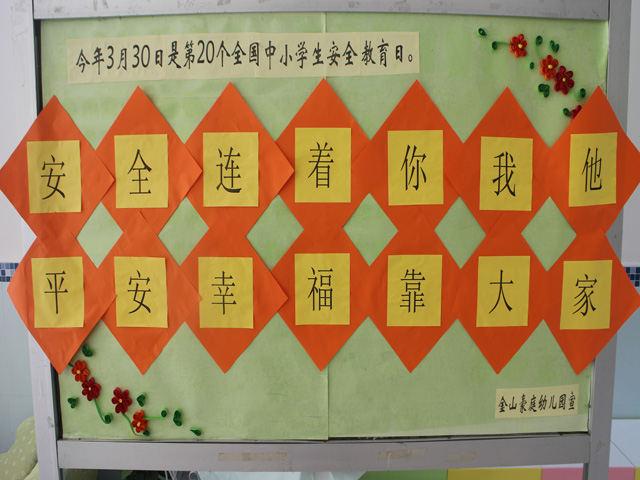 今年3月30日是第20个全国中小学生安全教育日。
安全连着你我他
平安幸福靠大家
金山豪庭幼儿园宣